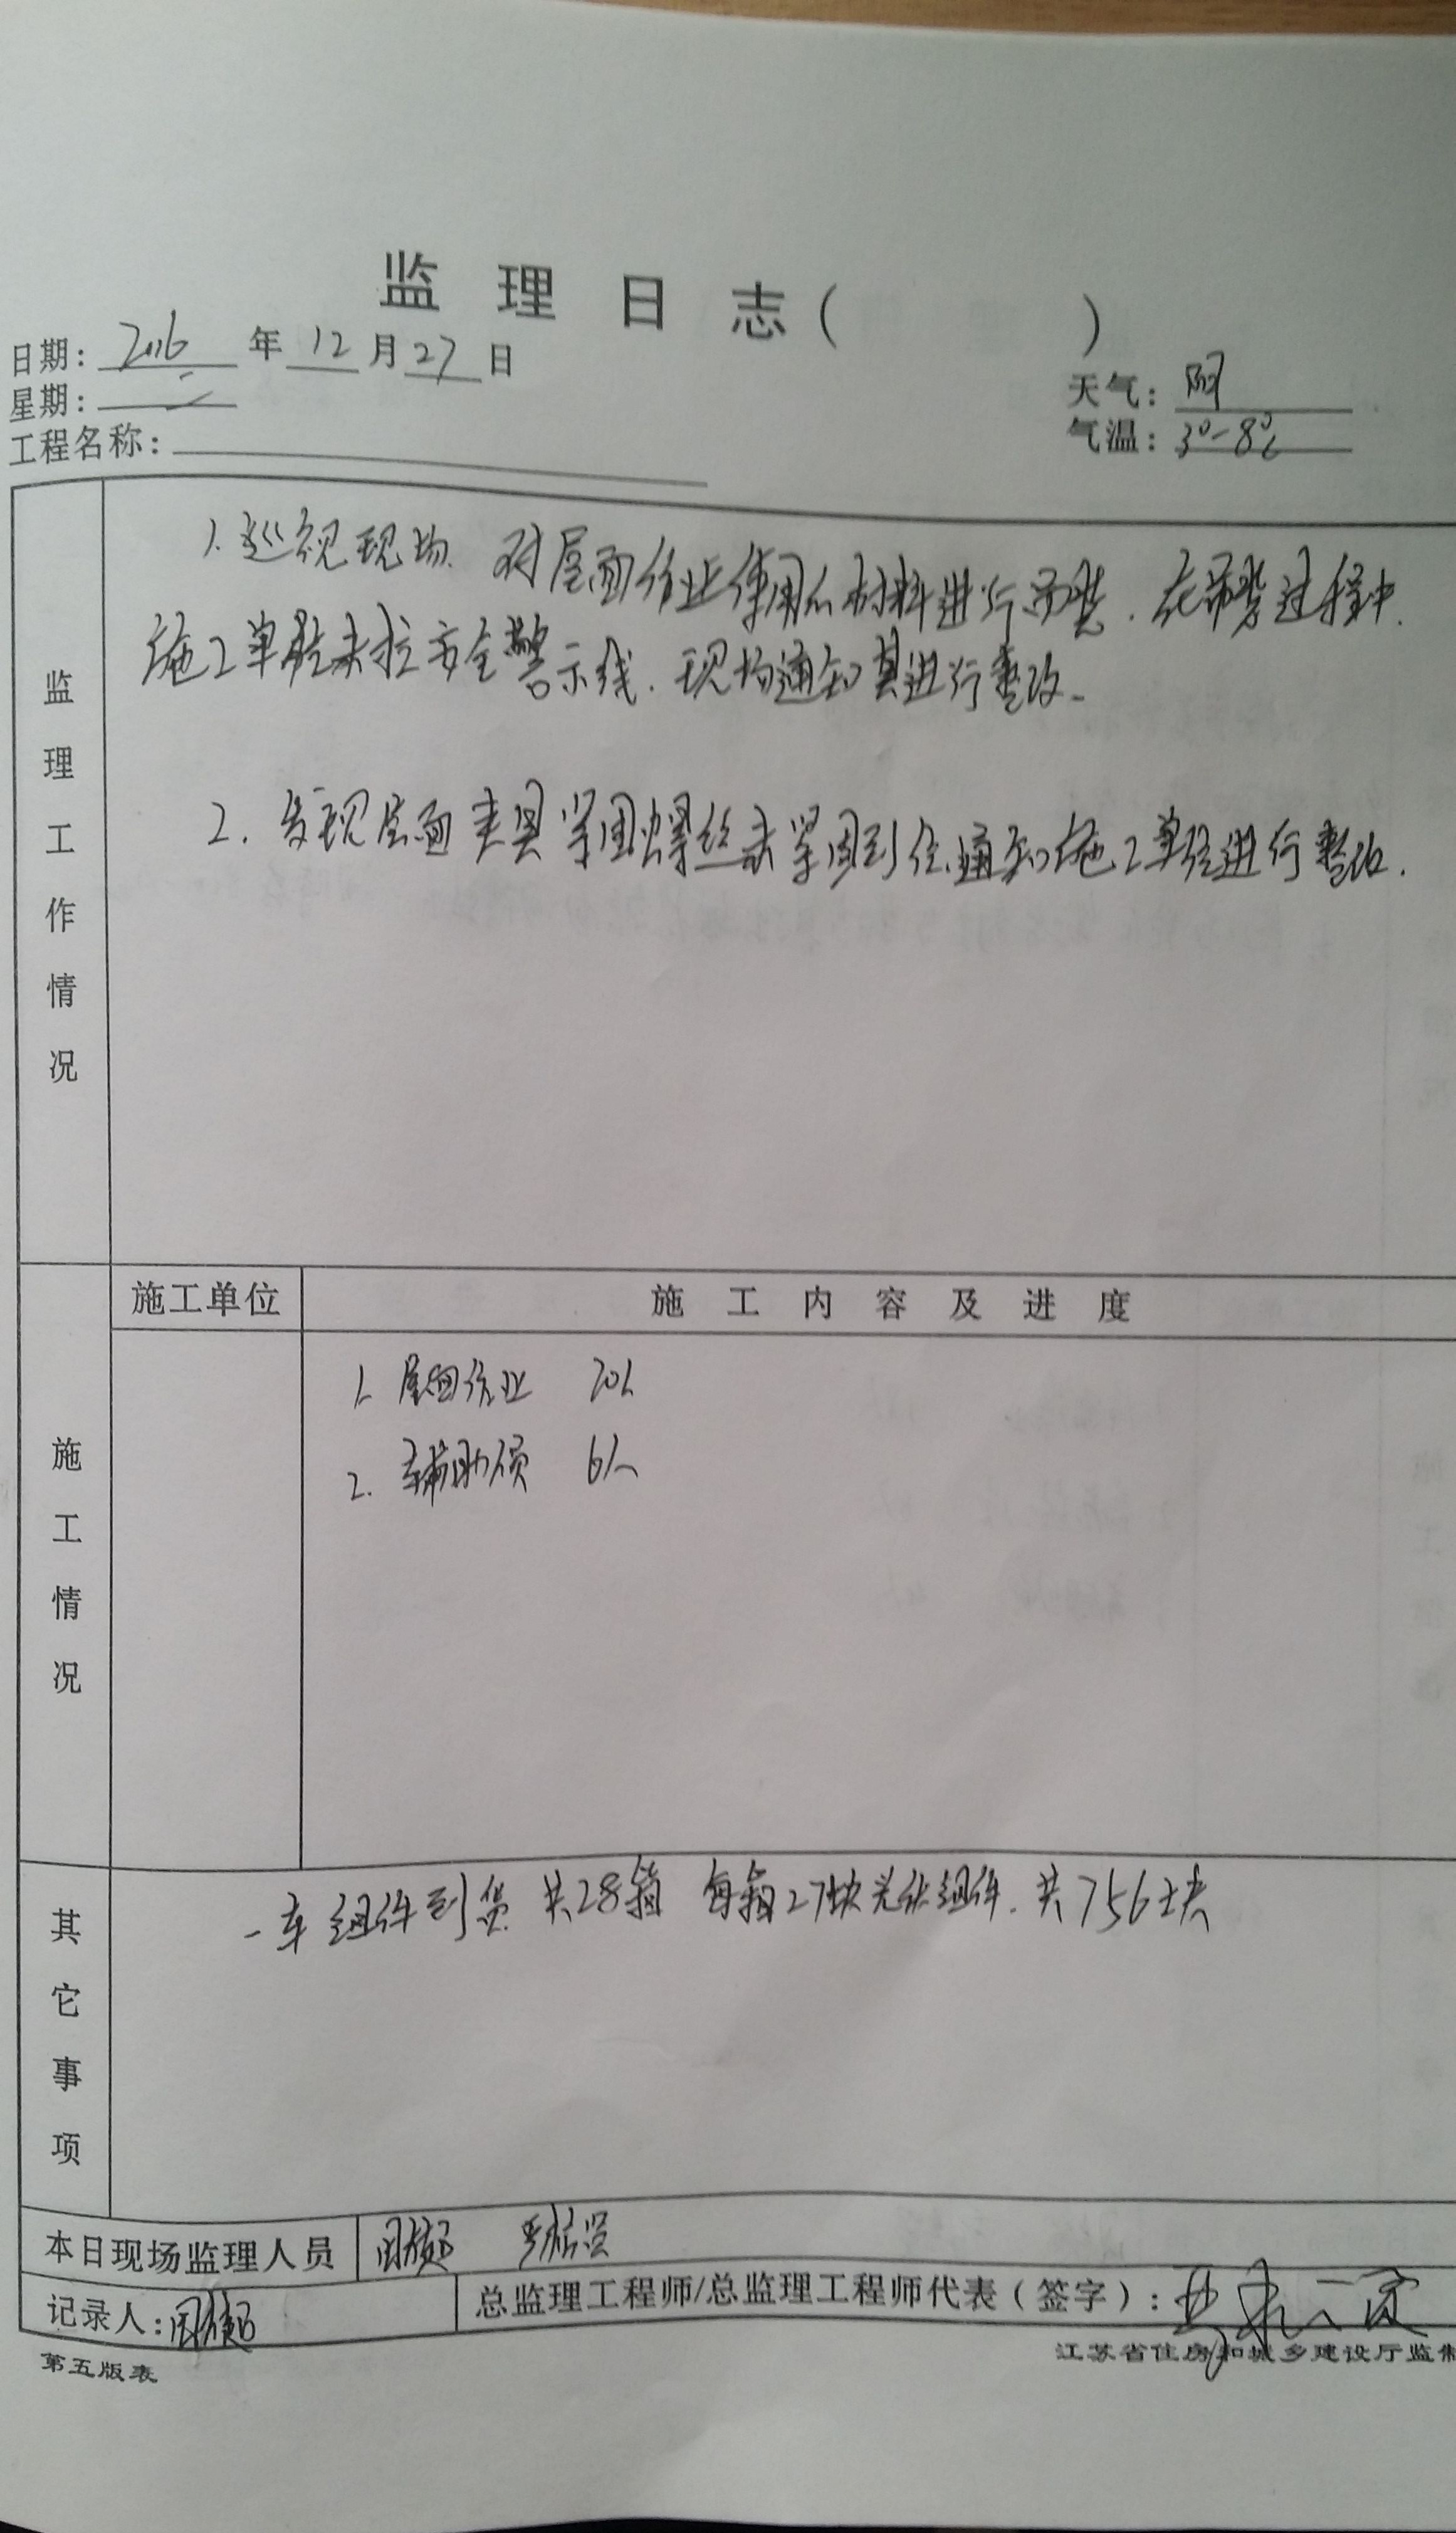 监理日志（ ）
日期：2016年12月27日
星期：二
天气：阴
工程名称：
气温：3°-8℃
监理工作情况
1.巡视现场.对屋面作业使用的材料进行吊装.在吊装过程中.
施工单位未拉安全警示线.现场通知其进行整改.
2.发现屋面夹具紧固螺丝未紧固到位.通知施工单位进行整改.
施工单位 施工内容及进度
施工情况
1.屋面作业 20人
2.辅助人员 6人
其它事项
一车组件到货 共28箱 每箱27块光伏组件.共756块
本日现场监理人员 周超
记录人：周超 总监理工程师/总监理工程师代表（签字）：
第五版表 江苏省住房和城乡建设厅监制